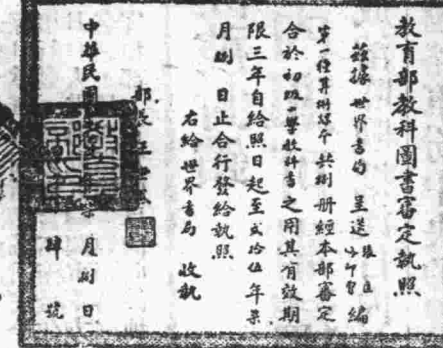 教育部教科圖書審定執照
茲據世界書局呈送編
第一種算術 共捌册經本部審定
合於初級小學教科書之用其有效期
限三年自給照日起至貳拾伍年柒
月捌日止合行發給執照
右給世界書局收執
部長王世杰
中華民國 柒月捌日
肆號